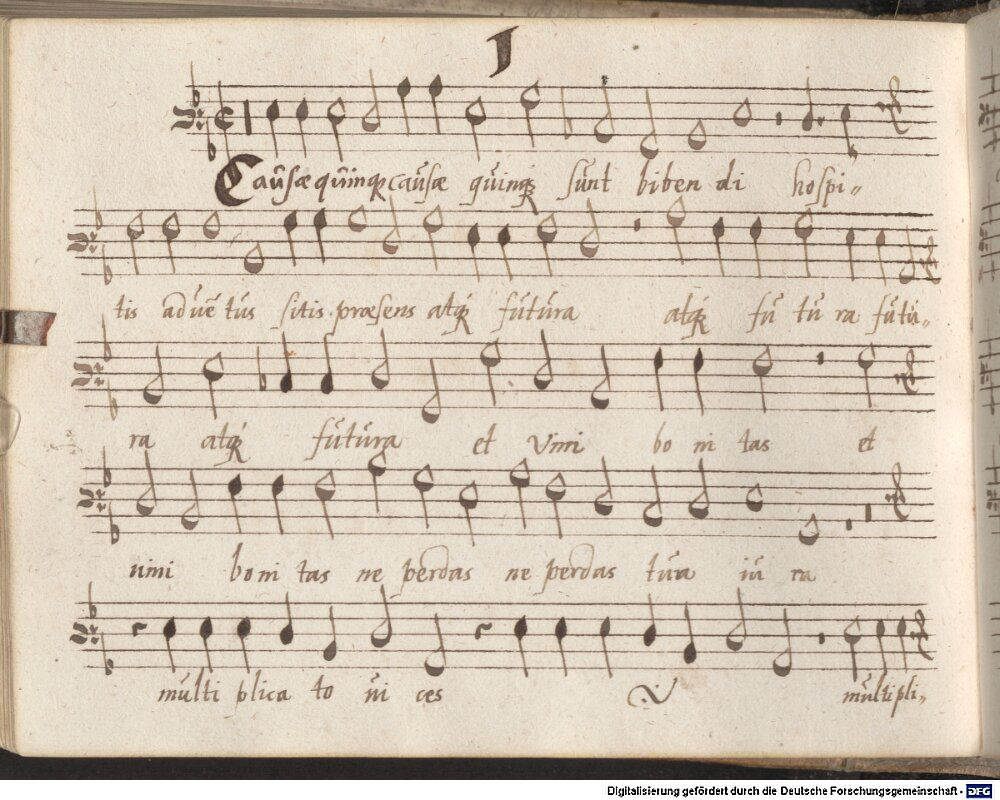 I
Causæ quinqꝫ causæ quinqꝫ sunt biben di hospi⸗
tis advẽ tus sitis præsens atqꝫ futura atqꝫ fu tu ra futu⸗
ra atqꝫ futura et vini bo ni tas et
vini boni tas ne perdas ne perdas tura iu ra
multi plica to vi ces multipli⸗
Digitalisierung gefördert durch die Deutsche Forschungsgemeinschaft - DFG